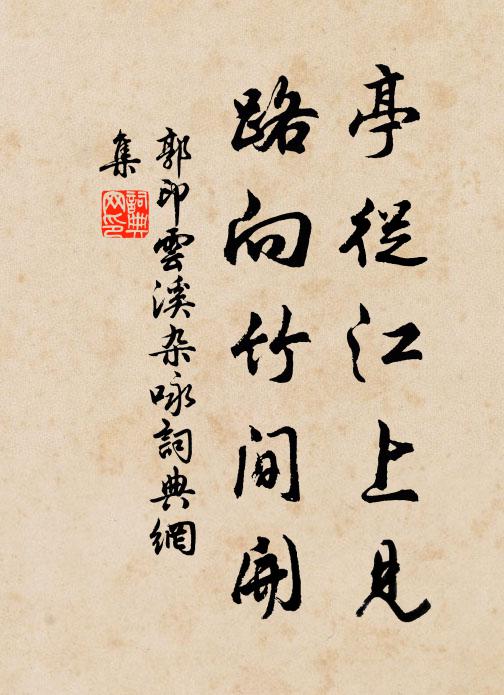 亭從江上見
路向竹間開
郭印雲溪杂咏詞典網
集
詞典網印